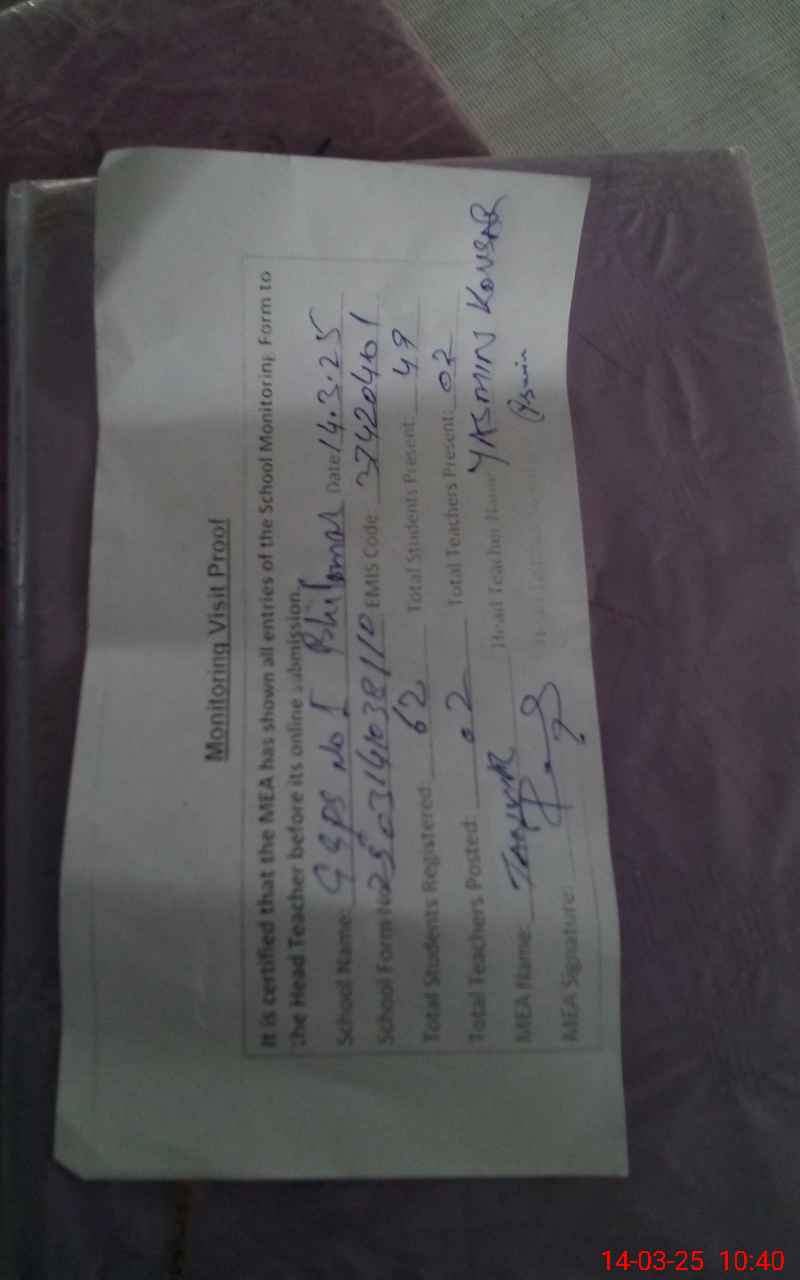 Monitoring Visit Proof
It is certified that the MEA has shown all entries of the School Monitoring Form to
the Head Teacher before its online submission.
School Name: GGPS No I Bhilomar Date 14.3.25
School Form No 250314103811 EMIS Code: 37420401
Total Students Registered: 62 Total Students Present: 49
Total Teachers Posted: 02 Total Teachers Present: 02
MEA Name: Head Teacher Name YASMIN KOUSAR
MEA Signature: Head Teacher
14-03-25 10:40